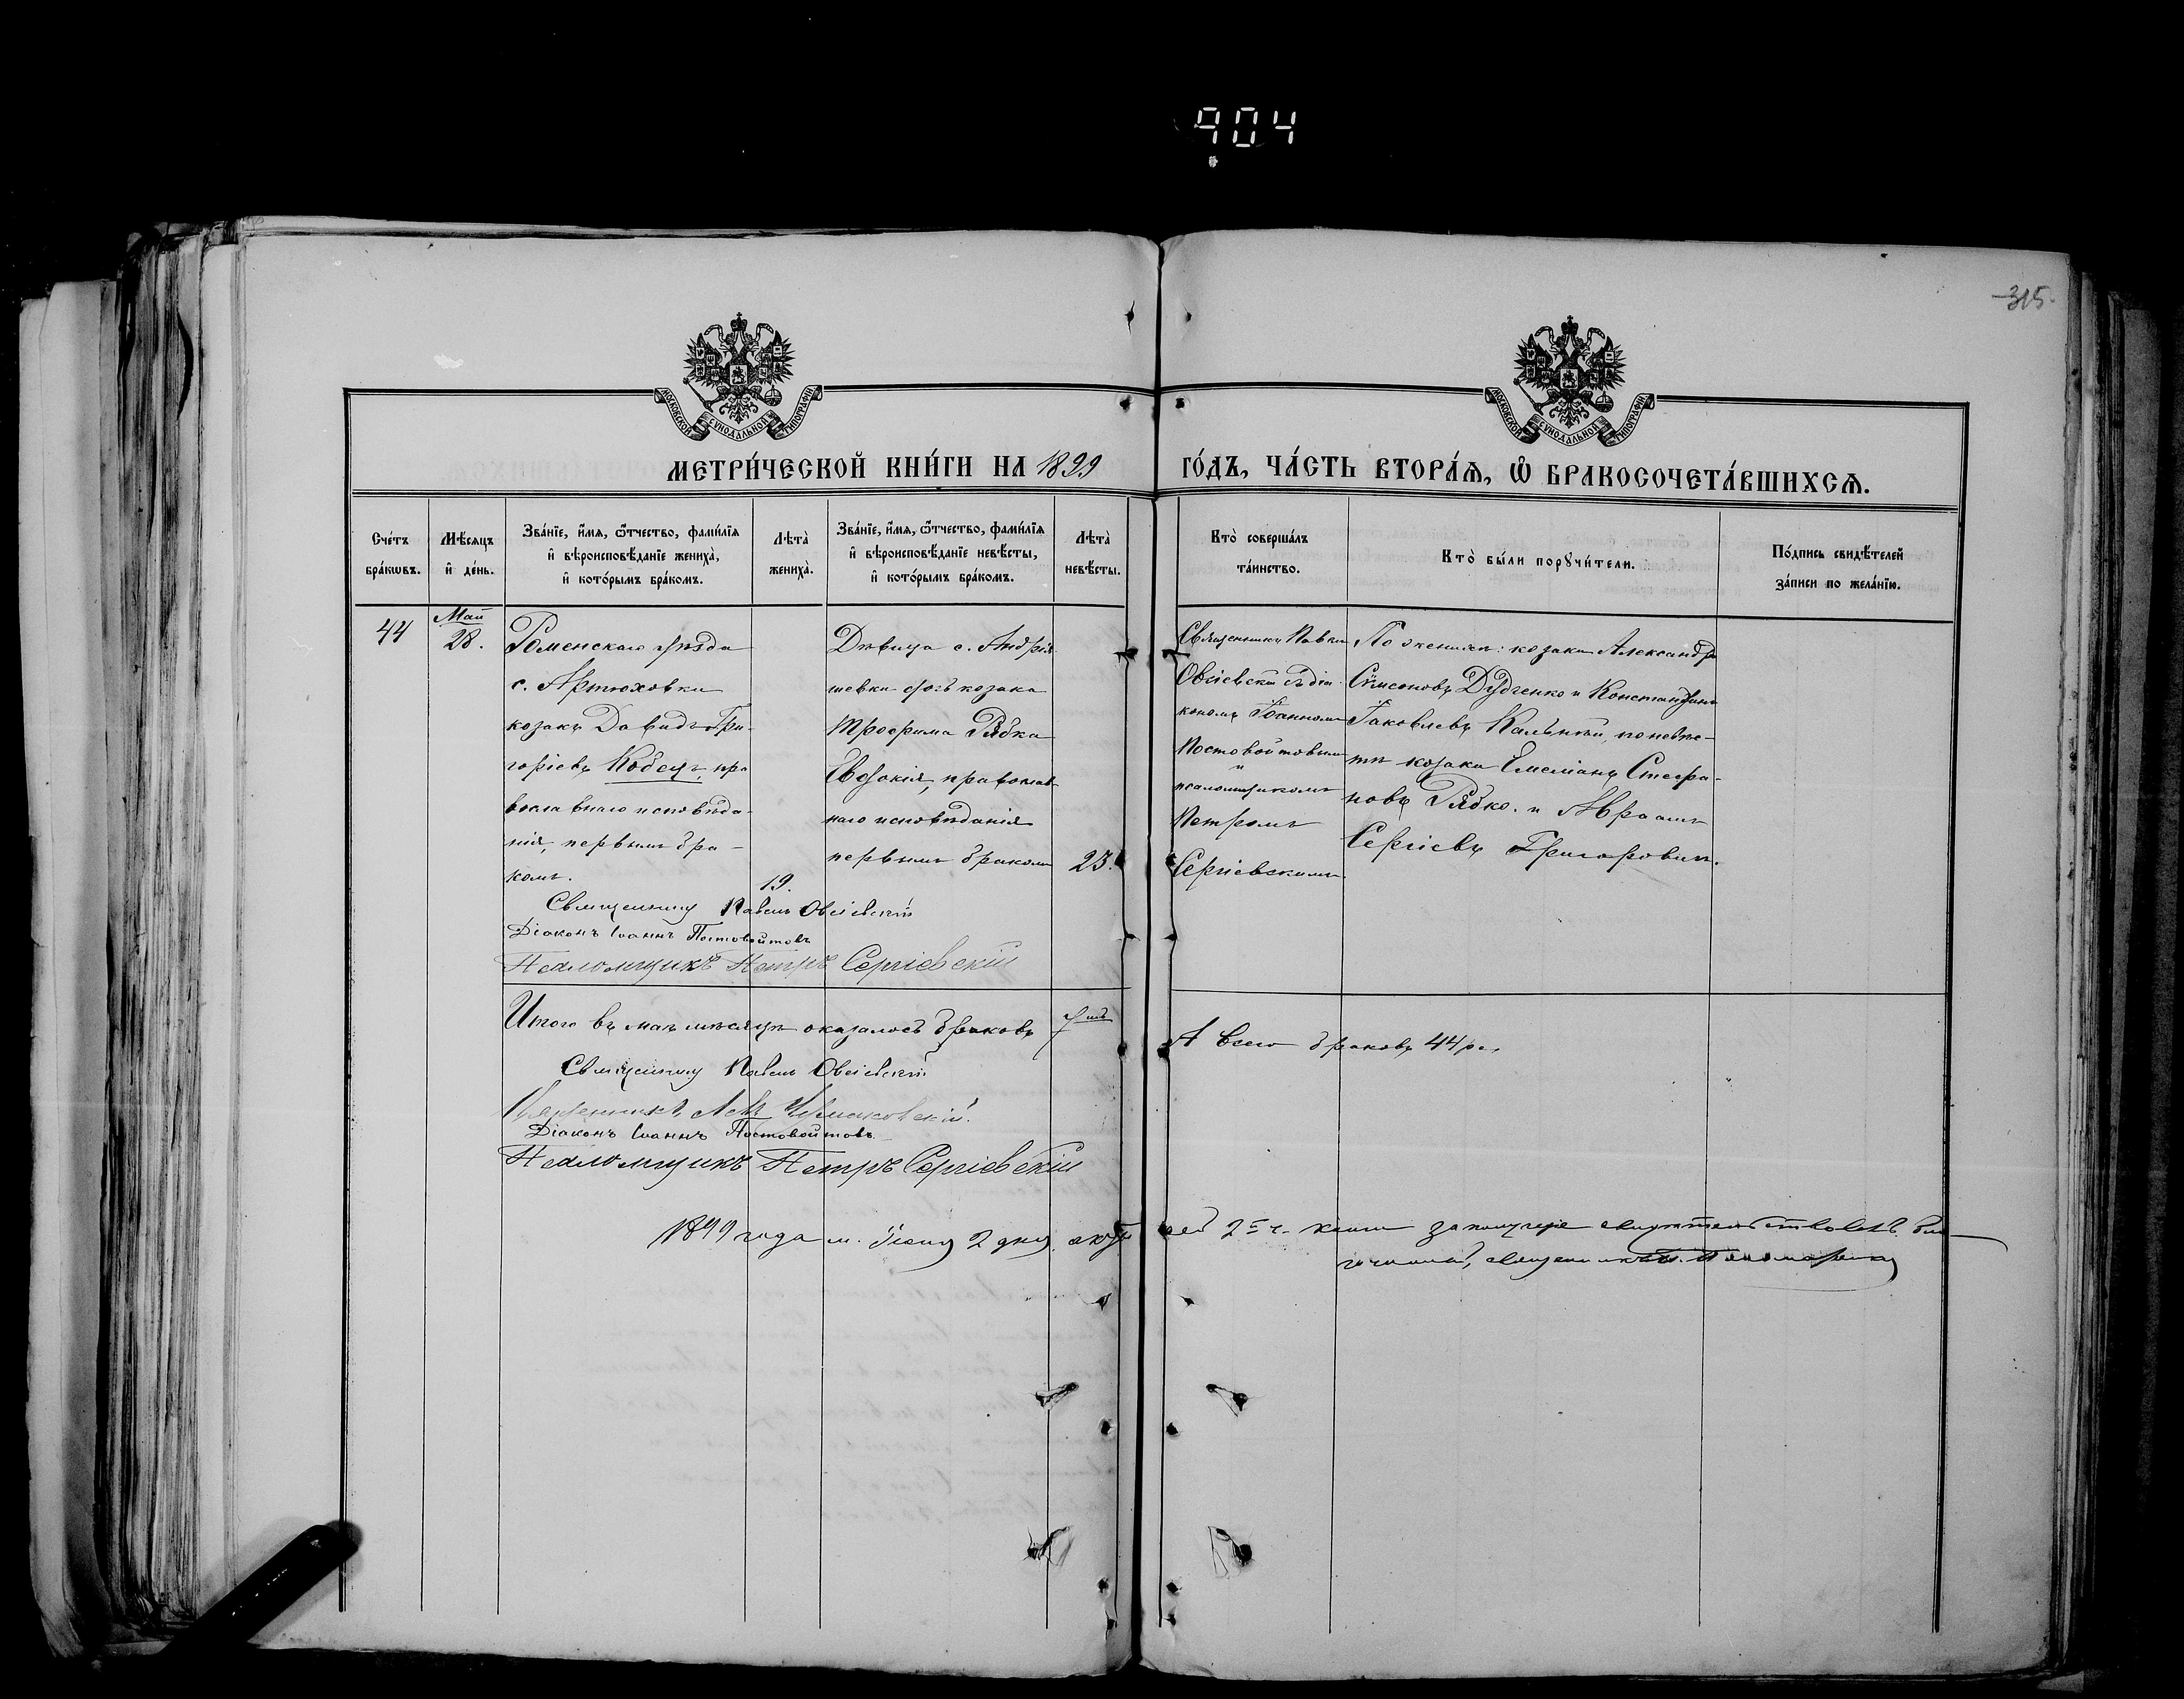 904
315
МОСКОВСКОЙ СУНОДАЛЬНОЙ ТИПОГРАФІИ
МОСКОВСКОЙ СУНОДАЛЬНОЙ ТИПОГРАФІИ
МЕТРИ́ЧЕСКОЙ КНИ́ГИ НА 1899 ГО́ДЪ, ЧА́СТЬ ВТОРА́Я, Ѡ БРАКОСОЧЕТА́ВШИХСѦ.
Сче́тъ
бра́кѡвъ.
Мѣ́сяцъ
и де́нь.
Зва́нїе, и́мя, ѻ́тчество, фами́лїя
и вѣроисповѣ́данїе жениха̀,
и кото́рымъ бра́комъ.
Лѣта̀
жениха̀.
Зва́нїе, и́мя, ѻ́тчество, фами́лїя
и вѣроисповѣ́данїе невѣ́сты,
и кото́рымъ бра́комъ.
Лѣта̀
невѣ́сты.
Кто̀ соверша́лъ
та́инство.
Кто̀ бы́ли порꙋчи́тели.
По́дпись свидѣ́телей
за́писи по жела́нїю.
44
Май
28.
Роменскаго уѣзда
с. Артюховки
козакъ Давидъ Гри-
горіевъ Кобецъ, пра
вославнаго исповѣда-
нія, первымъ бра-
комъ.
19.
Дѣвица с. Андрія
шевки дочь козака
Трофима Рябка
Евдокія, православ-
наго исповѣданія
первымъ бракомъ
23.
Священникъ Павелъ
Овсіевскій съ діа-
кономъ Іоанномъ
Постовойтовымъ
и
псаломщикомъ
Петромъ
Сергіевскимъ.
По женихѣ: козаки Александръ
Симеоновъ Дудченко и Константинъ
Іаковлевъ Кальный, по невѣс-
тѣ козаки Емеліанъ Стефа-
новъ Рябко. и Авраамъ
Сергіевъ Григоровичъ.
Священникъ Павелъ Овсіевскій
Діаконъ Іоаннъ Постовойтовъ
Псаломщикъ Петръ Сергіевскій
Итого въ маѣ мѣсяцѣ оказалось браковъ 7мь
А всего браковъ 44ре.
Священникъ Павелъ Овсіевскій
Священникъ Левъ
Діаконъ Іоаннъ Постовойтовъ
Псаломщикъ Петръ Сергіевскій
1899 года м. Іюня 2 дня